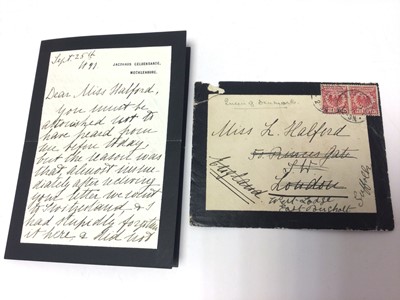 Sept 25th
1891
JAGDHAUS GELBENSANDE,
MECKLENBURG.
Dear Miss Halford,
You must be
astonished not to
have heard from
me before today
but the reason was
that almost imme
diately after receiving
your letter we went
to Switzerland, & I
had stupidly forgotten
it here, & did not
Queen of Denmark
Miss L. Halford
50 Princes Gate
S.W.
London
England
West Lodge
East